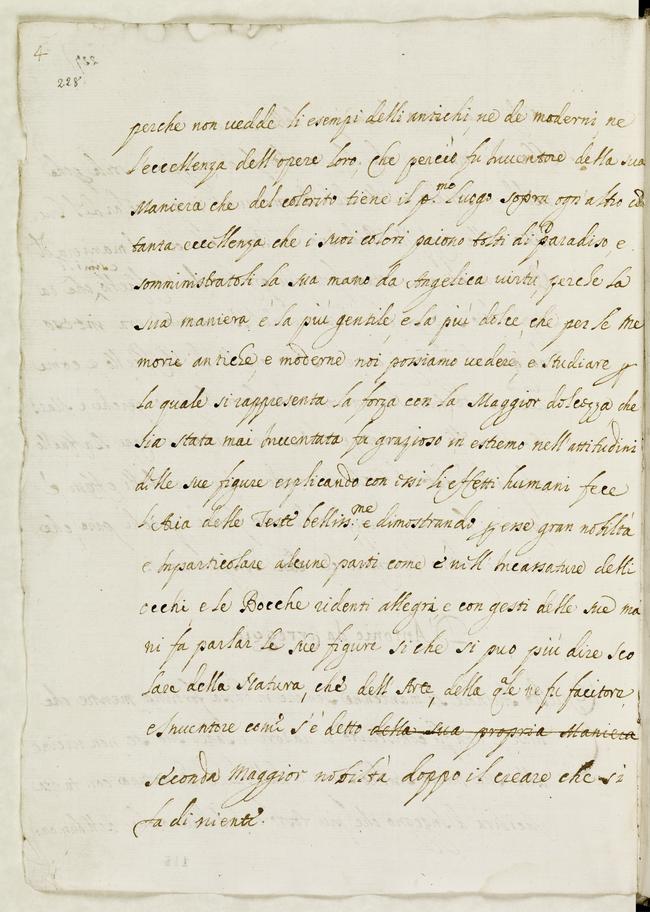 4
227
228
perche non vedde li esempi delli antichi, ne de moderni, ne
l'eccellenza dell'opere loro, che perciò fu Inventore della sua
Maniera che del colorito tiene il p.mo luogo sopra ogn'altro con
tanta eccellenza che i suoi colori paiono tolti di Paradiso, e
somministratoli la sua mano da Angelica virtù, perche la
sua maniera è la più gentile, e la più dolce, che per le me
morie antiche, e moderne noi possiamo vedere, e studiare p
la quale si rappresenta la forza con la Maggior dolcezza che
sia stata mai Inventata fu grazioso in estremo nell'attitudini
delle sue figure esplicando con essi li effetti humani fece
l'Aia delle Teste belliss:me e dimostrando p esse gran nobiltà
e Inparticolare alcune parti come è nell'Incassature delli
occhi, e le Bocche ridenti allegre e con gesti delle sue ma
ni fa parlar le sue figure si che si può più dire sco
lare della Natura, che dell'Arte, della q.le ne fu facitore,
e Inventore come s'è detto della sua propria Maniera
seconda Maggior nobiltà doppo il creare che si
fa di niente.